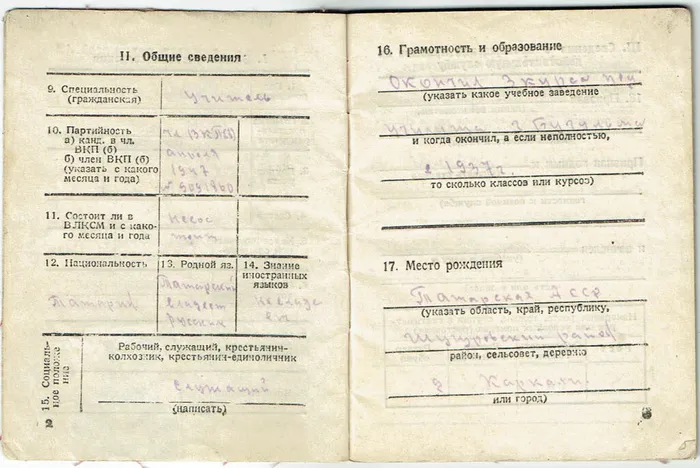 II. Общие сведения
9. Специальность
(гражданская)
учитель
10. Партийность
а) канд. в чл.
ВКП (б)
б) член ВКП (б)
(указать с какого
месяца и года)
чл ВКП(б)
апреля
1947
11. Состоит ли в
ВЛКСМ и с како-
го месяца и года
несос
тоит
12. Национальность
Татарин
13. Родной яз.
Татарский
владеет
русским
14. Знание
иностранных
языков
не владе
ет
15. Социаль-
ное положе-
ние
Рабочий, служащий, крестьянин-
колхозник, крестьянин-единоличник
Служащий
(написать)
2
16. Грамотность и образование
Окончил 3 курса пед
(указать какое учебное заведение
училища г Бугульма
и когда окончил, а если неполностью,
в 1937г.
то сколько классов или курсов)
17. Место рождения
Татарская АССР
(указать область, край, республику,
Шугуровский район
район, сельсовет, деревню
д Каркали
или город)